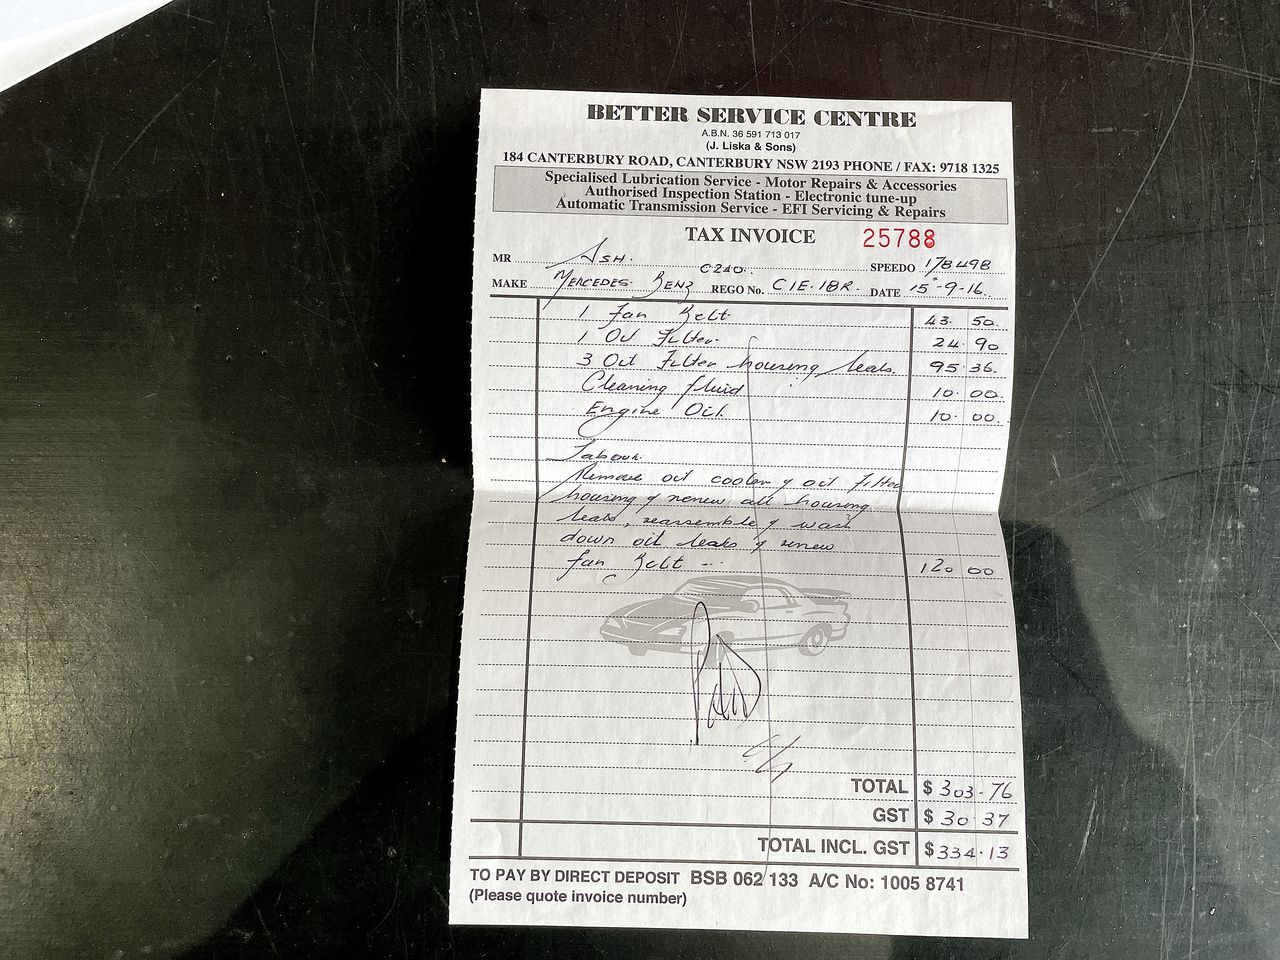 BETTER SERVICE CENTRE
A.B.N. 36 591 713 017
(J. Liska & Sons)
184 CANTERBURY ROAD, CANTERBURY NSW 2193 PHONE / FAX: 9718 1325
Specialised Lubrication Service - Motor Repairs & Accessories
Authorised Inspection Station - Electronic tune-up
Automatic Transmission Service - EFI Servicing & Repairs
TAX INVOICE 25788
MR ASH. C240. SPEEDO 178498
MAKE MERCEDES BENZ REGO No. C1E.18R. DATE 15-9-16.
1 Fan Belt 43 50
1 Oil Filter 24 90
3 Oil Filter housing seals 95 36
Cleaning fluid 10 00
Engine Oil 10 00
Labour
Remove oil cooler & oil filter
housing & renew all housing
seals, reassemble & wash
down oil leaks & renew
fan Belt -- 120 00
TOTAL $ 303.76
GST $ 30 37
TOTAL INCL. GST $ 334.13
TO PAY BY DIRECT DEPOSIT BSB 062 133 A/C No: 1005 8741
(Please quote invoice number)